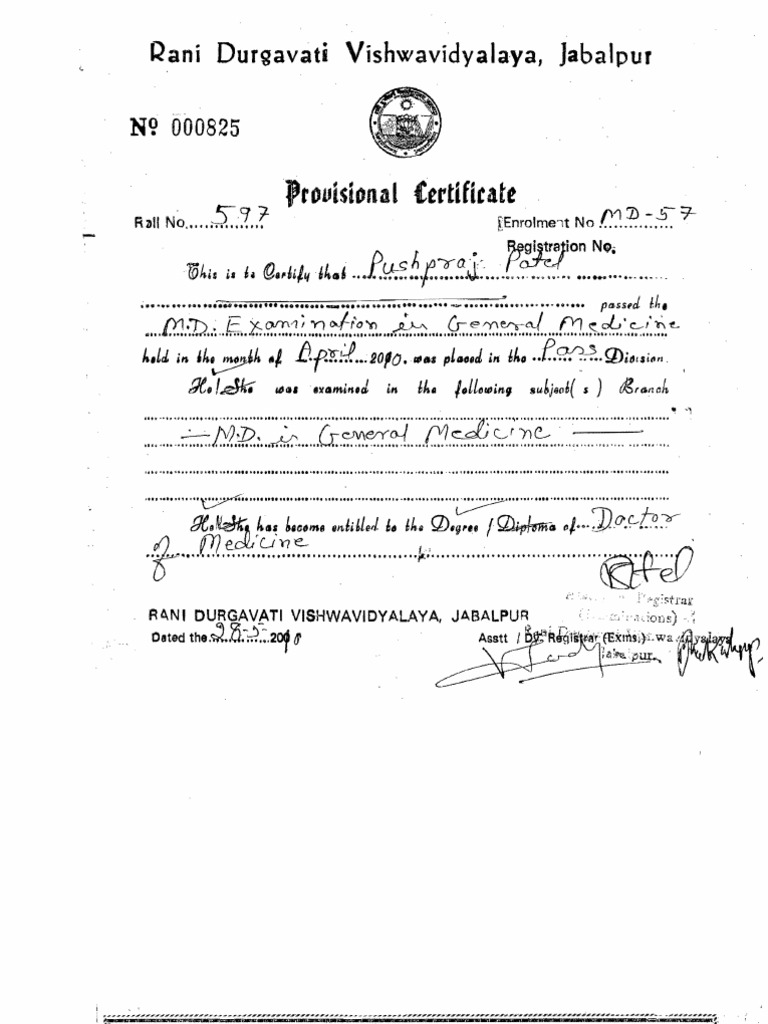 Rani Durgavati Vishwavidyalaya, Jabalpur
Nº 000825
Provisional Certificate
Roll No. 597 Enrolment No MD-57
Registration No.
This is to Certify that Pushpraj Patel
passed the
M.D. Examination in General Medicine
held in the month of April 2010, was placed in the Pass Division.
He/She was examined in the following subject(s) Branch
M.D. in General Medicine
He/She has become entitled to the Degree / Diploma of Doctor
of Medicine
Registrar
RANI DURGAVATI VISHWAVIDYALAYA, JABALPUR
Dated the 28-5-2010 Asstt / Dy. Registrar (Exms.)